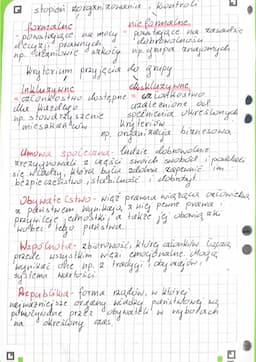 stopień zorganizowania i kontroli
formalne nieformalne
- powstające na mocy - powstające na zasadzie
decyzji prawnych dobrowolności
np. uczniowie szkoły np. grupa znajomych
kryterium przyjęcia do grupy
inkluzywne ekskluzywne
- członkostwo dostępne - członkostwo
dla każdego uzależnione od
np. stowarzyszenie spełnienia określonych
mieszkańców kryteriów
np. organizacja biznesowa
Umowa społeczna - ludzie dobrowolnie
zrezygnowali z części swoich swobód i poddali
się władzy, która była zdolna zapewnić im
bezpieczeństwo, stabilność i dobrobyt.
Obywatelstwo - więź prawna wiążąca człowieka
z państwem, wynikają z niej pewne prawa i
przywileje jednostki, a także jej obowiązki
wobec tego państwa.
Wspólnota - zbiorowość, której członków łączą
przede wszystkim więzi emocjonalne. Mogą
wynikać one np. z tradycji, obyczajów,
systemu wartości.
Republika - forma rządów, w której
najważniejsze organy władzy państwowej są
powoływane przez obywateli w wyborach
na określony czas.